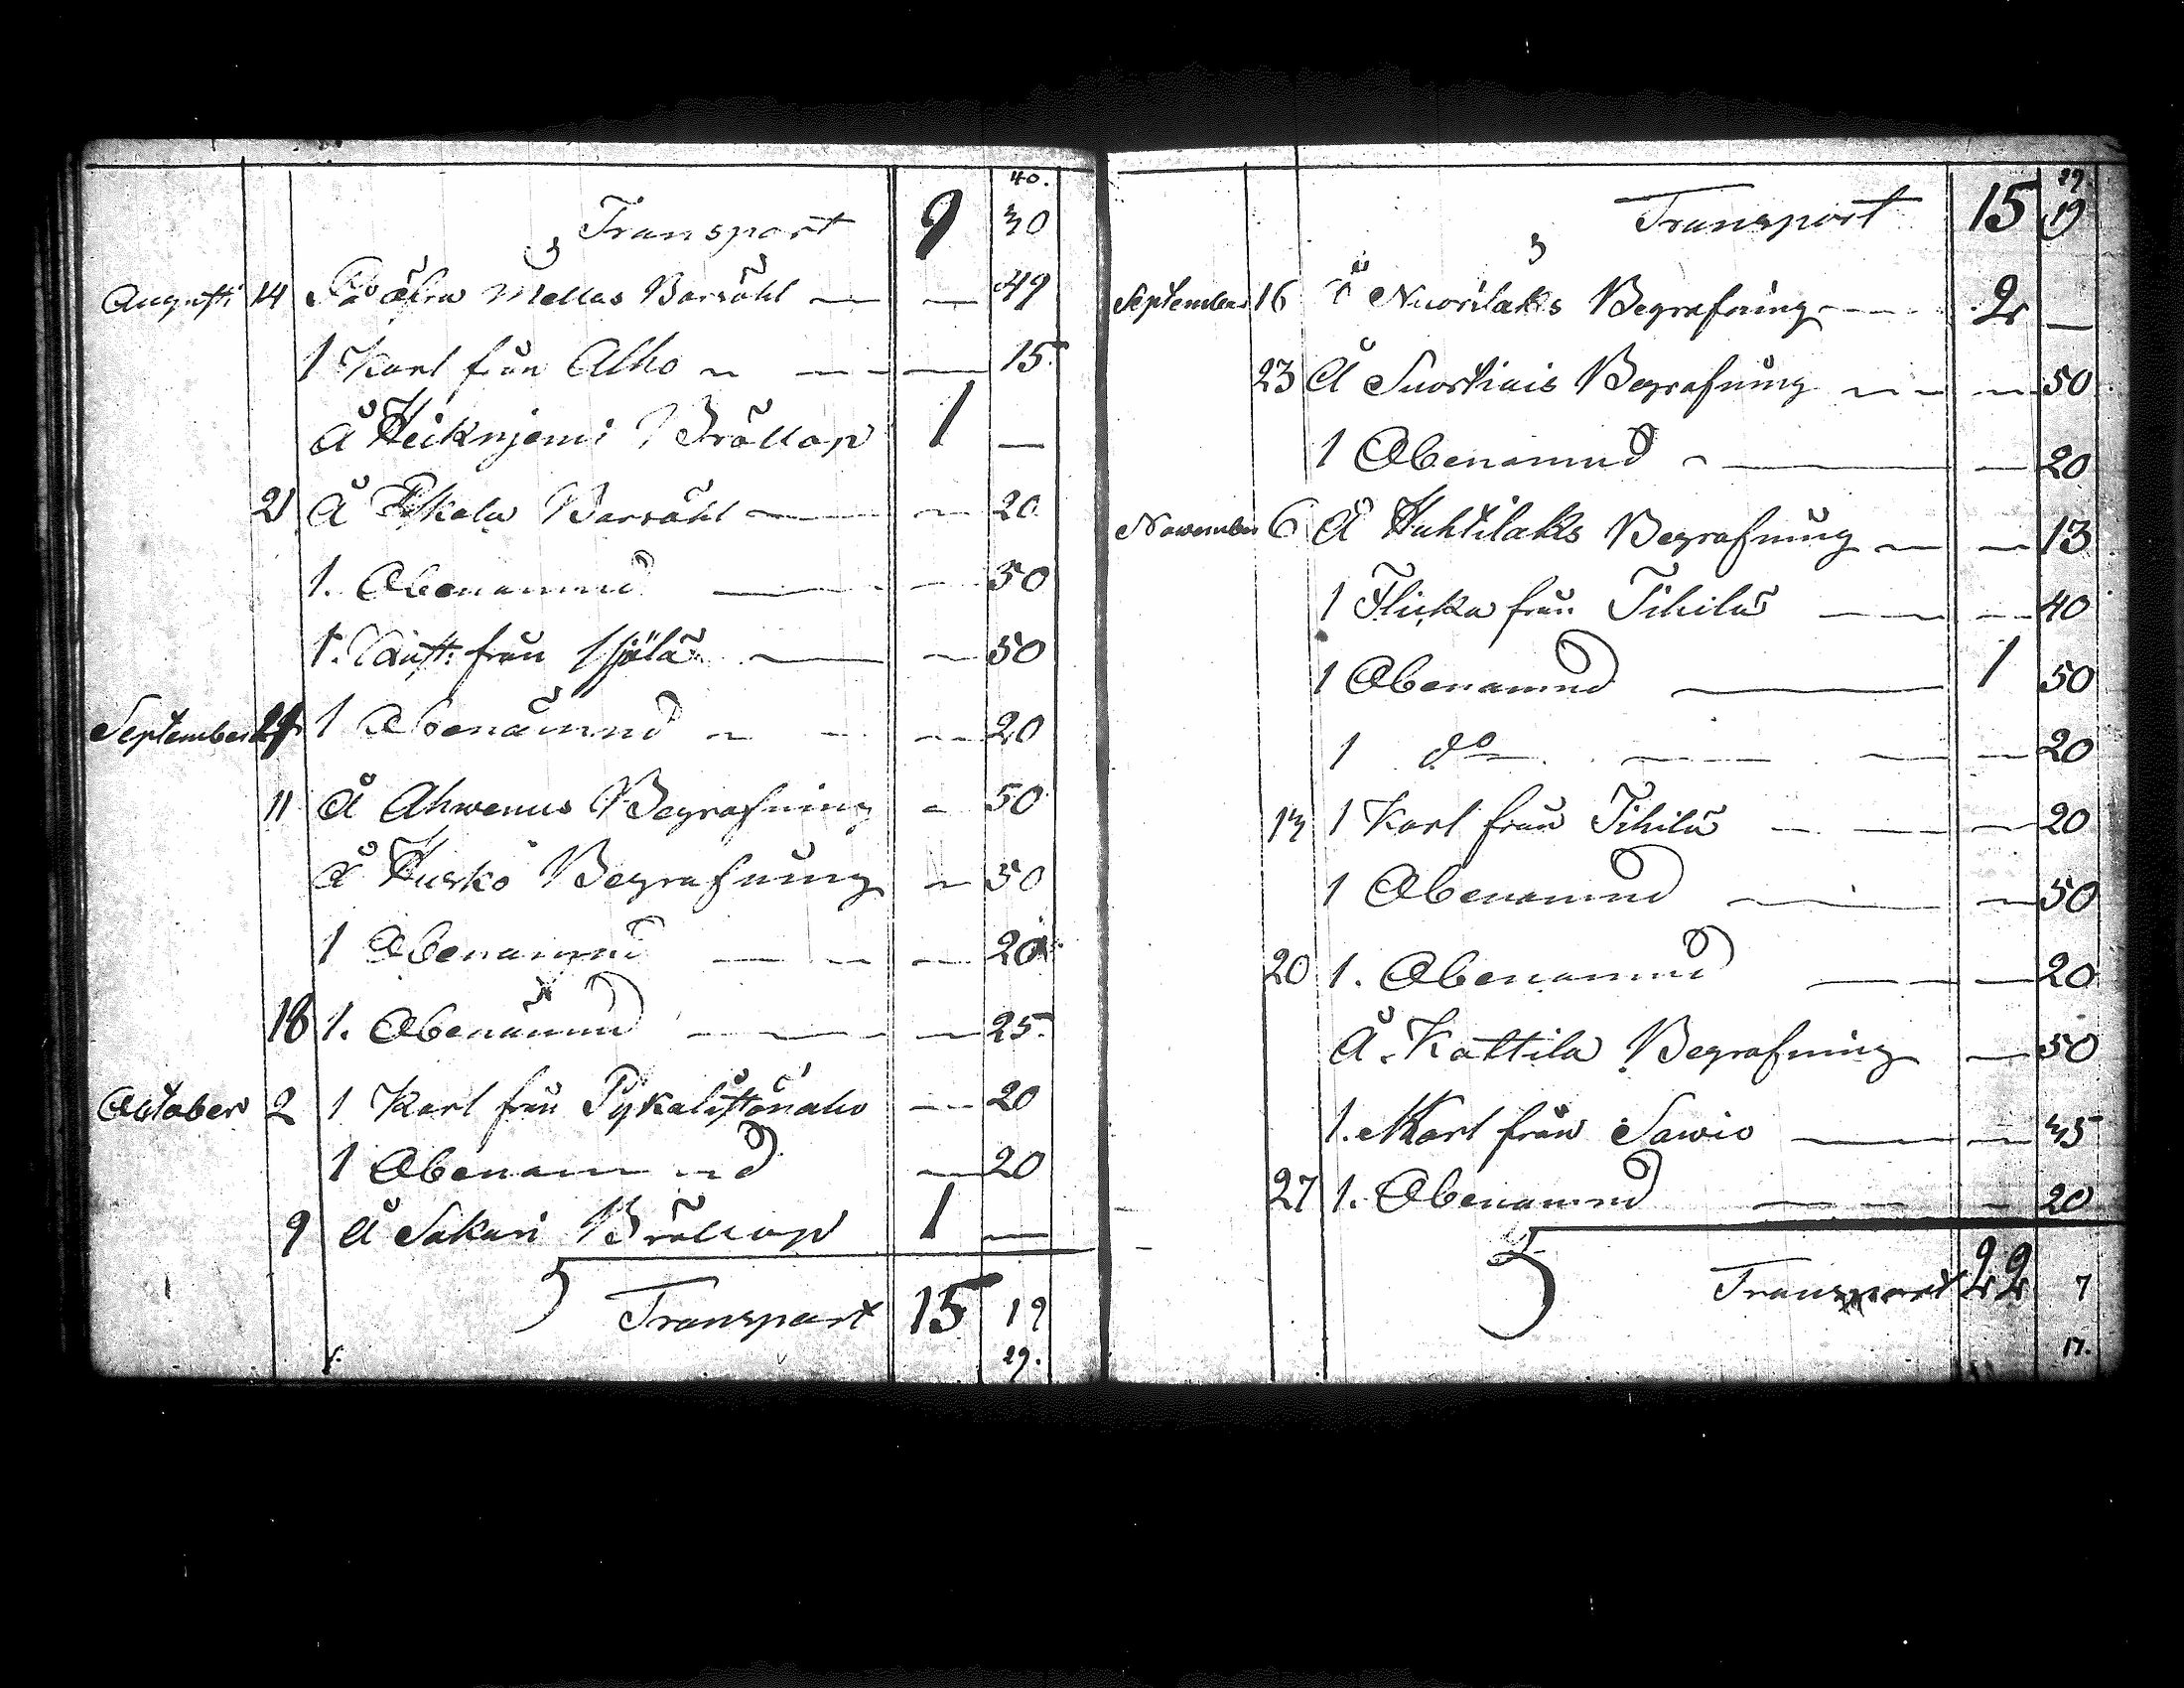 40.
Transport 9 30
Augusti 14 På öfra Mellas Barsöhl — — 49
1 Karl från Alho — — 15.
Å Heiknjemi Bröllop 1 —
21 Å Pykala Barsöhl — — 20
1. Obenämnd — — 50
1. från — 50
September 4 1 Obenämnd — — 20
11 Å Ahwenus Begrafning — 50
Å Hurko Begrafning — 50
1 Obenämnd — — 20
18 1. Obenämnd — — 25.
October 2 1 Karl från — 20
1 Obenämnd — 20
9 Å Sakari Bröllop 1 —
Transport 15 19
29.
29.
Transport 15 19
September 16 Å Nuorilaks Begrafning — 2 —
23 Å Suortiais Begrafning — — 50
1 Obenämnd — — 20
November 6 Å Huhtilaks Begrafning — — 13
1 Flicka från Tihilä — — 40
1 Obenämnd — 1 50
1 do — — 20
13 1 Karl från Tihilä — — 20
1 Obenämnd — — 50
20 1. Obenämnd — — 20
Å Kattila Begrafning — 50
1. Karl från Sawio — — 35
27 1. Obenämnd — — 20
Transport 22 7
17.